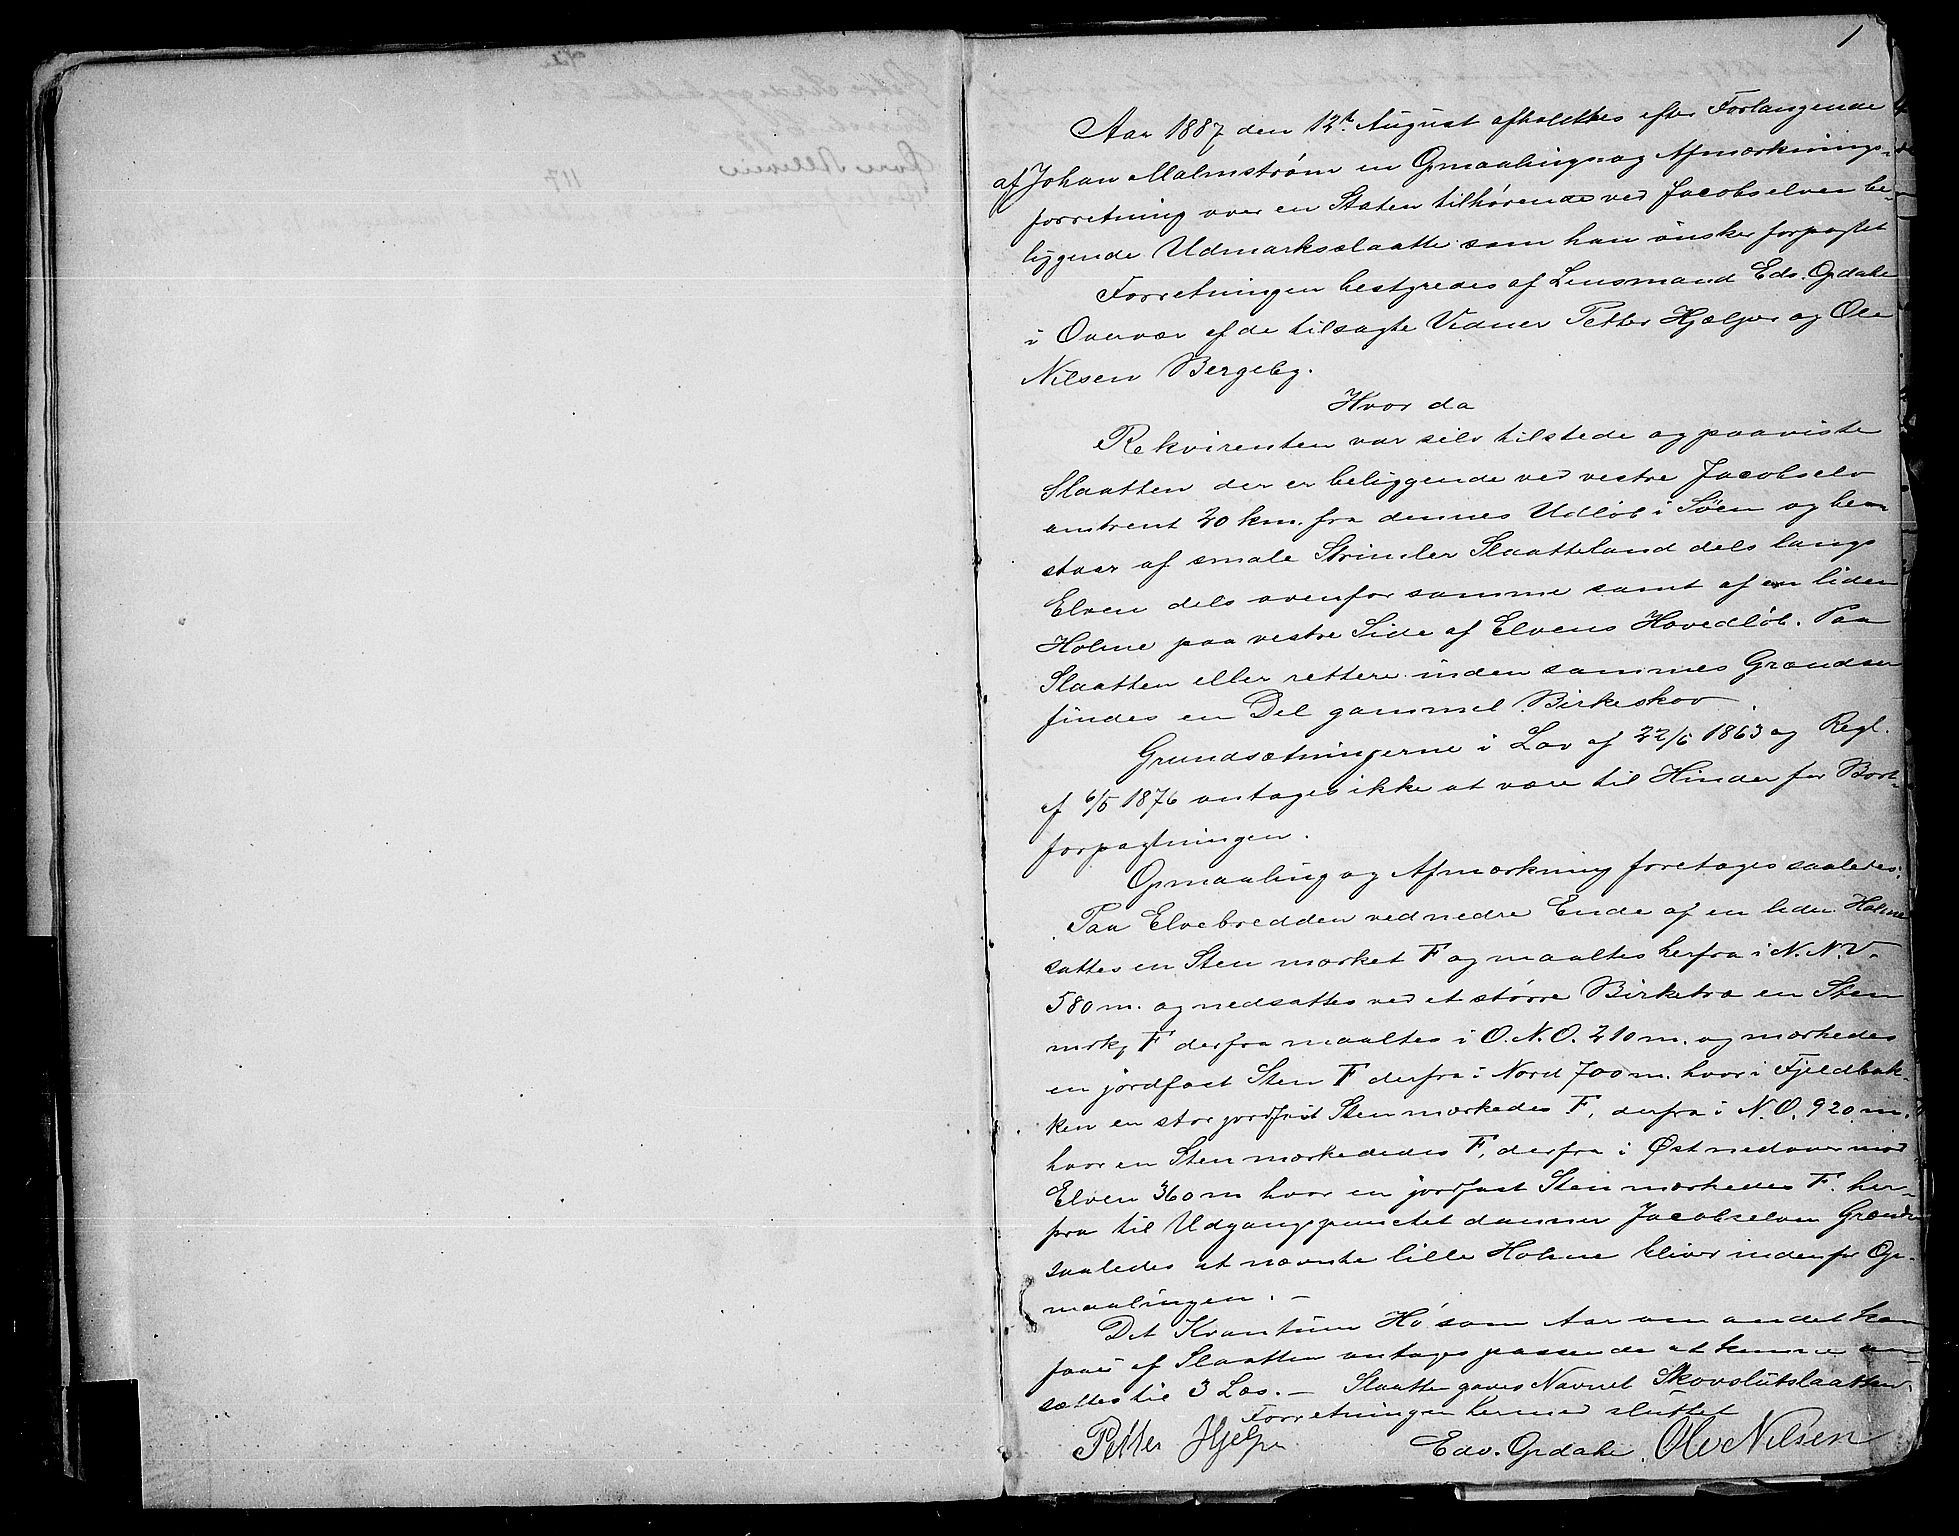 1
Aar 1887 den 12te August afholdtes efter Forlangende
af Johan Malmstrøm en Opmaalings og Afmærknings-
forretning over en Staten tilhørende ved Jacobselven be-
liggende Udmarksslaatte som han ønsker forpagtet
Forretningen bestyredes af Lensmand Edv. Opdahl
i Overvær af de tilsagte Vidner Petter Hjælper og Ole
Nilsen Bergeby.
Hvor da
Rekvirenten var selv tilstede og paaviste
Slaatten der er beliggende ved vestre Jacobselv
omtrent 20 km. fra dennes Udløb i Søen og be-
staar af smale Strimler Slaatteland dels langs
Elven dels ovenfor samme samt af en liden
Holme paa vestre Side af Elvens Hovedløb. Paa
Slaatten eller rettere inden sammes Grændser
findes en Del gammel Birkeskov
Grundsætningerne i Lov af 22/6 1863 og Regl.
af 6/5 1876 antages ikke at være til Hinder for Bort-
forpagtningen.
Opmaaling og Afmærkning foretages saaledes:
Paa Elvebredden ved nedre Ende af en liden Holme
sattes en Sten mærket F og maaltes herfra i N.N.V.
580 m. og nedsattes ved et større Birketræ en Sten
mrk F derfra maaltes i O.N.O. 210 m. og mærkedes
en jordfast Sten F derfra i Nord 700 m. hvor i Fjeldbak-
ken en stor jordfast Sten mærkedes F, derfra i N.O. 920 m.
hvor en Sten mærkededes F, derfra i Øst nedover mod
Elven 360 m hvor en jordfast Sten mærkedes F. her-
fra til Udgangspunctet danner Jacobselven Grændse
saaledes at nævnte lille Holme bliver indenfor Op-
maalingen. -
Det Kvantum Hø som Aar om andet kan
faaes af Slaatten antages passende at kunne an-
sættes til 3 Læs. - Slaatten gaves Navnet Skovslutslaatten.
Forretningen hermed sluttet
Petter Hjelper Edv. Opdahl. Ole Nilsen